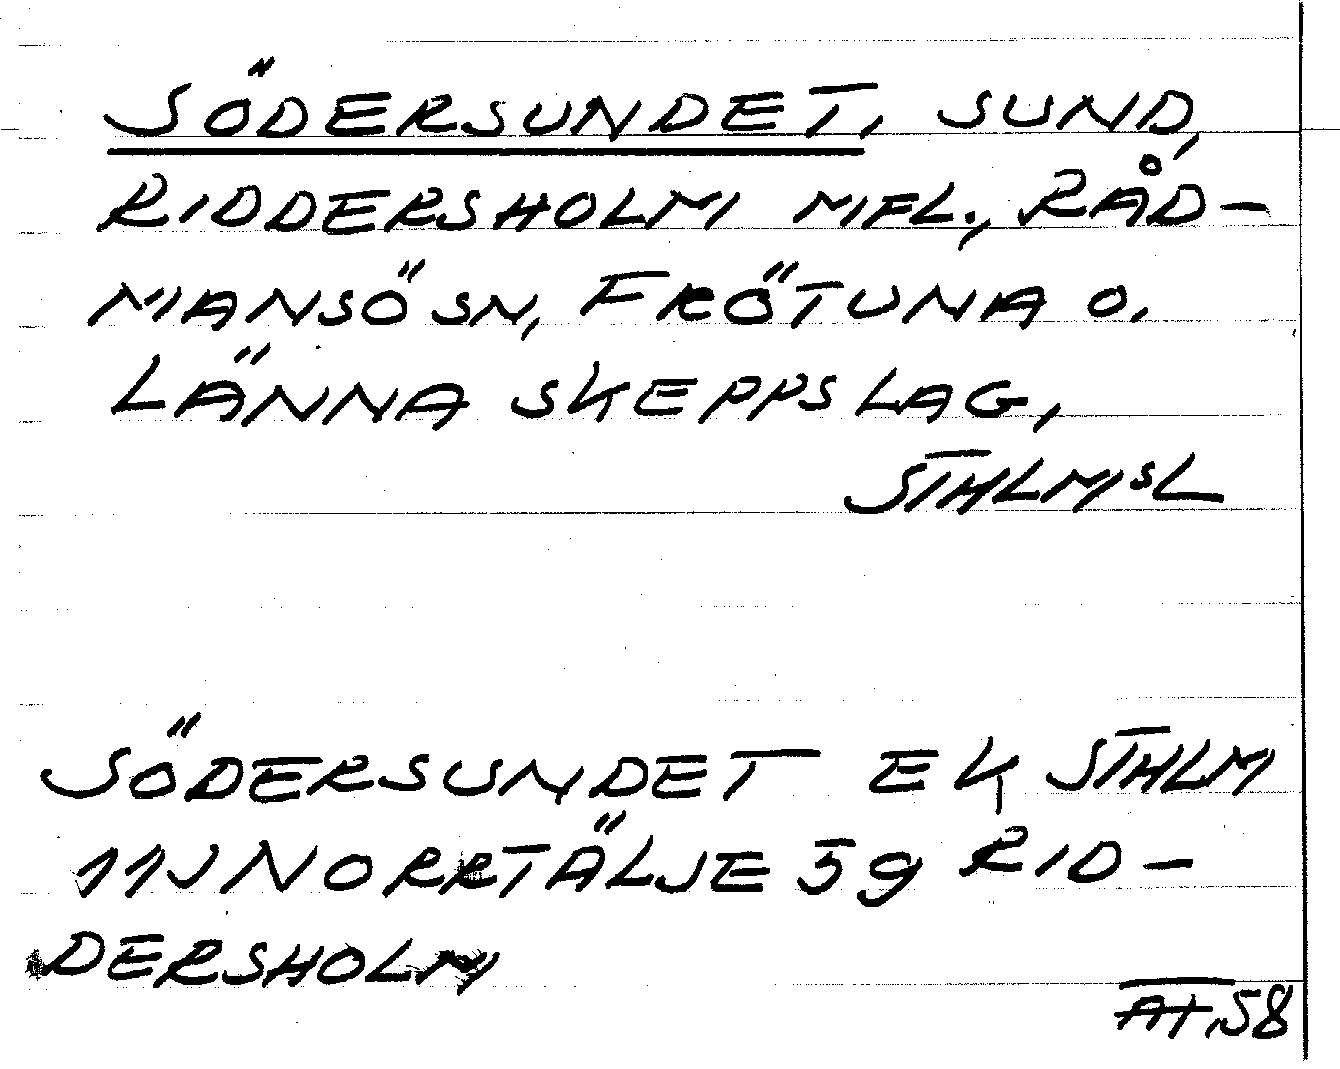 SÖDERSUNDET, SUND,
RIDDERSHOLM MFL., RÅD-
MANSÖ SN, FRÖTUNA O.
LÄNNA SKEPPSLAG,
STHLMSL
SÖDERSUNDET EK STHLM
11J NORRTÄLJE 59 RID-
DERSHOLM
AT.58